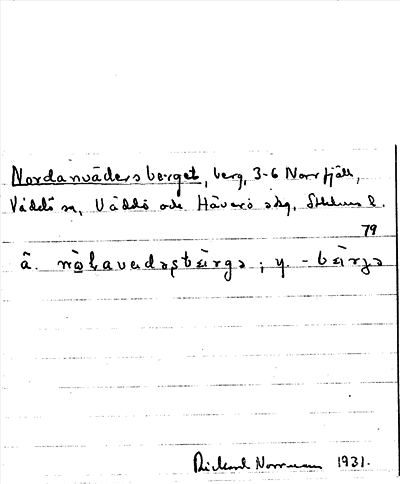 Nordanvädersberget, berg, 3-6 Norrfjäll,
Väddö sn, Väddö och Häverö skg, Sthlms l.
79
ä. ; y.
Rickard Norrman 1931.